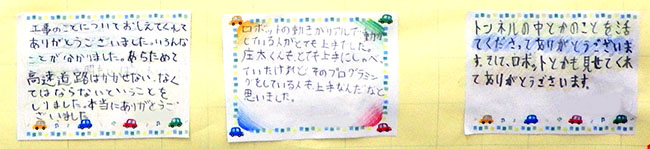 工事のことについておしえてくれて
ありがとうございました。いろんな
ことが分かりました。あらためて
高速道路はかかせない、なく
てはならないということを
しりました。本当にありがとうご
ざいました
ロボットの動きがリアルで、動か
している人がとても上手でした。
庄太くんも、とても上手にしゃべっ
ていたけれど、そのプログラミン
グをしている人も上手なんだなと
思いました。
トンネルの中とかのことを話し
てくださってありがとうございま
す。そして、ロボットとかも見せてくれ
てありがとうございます。